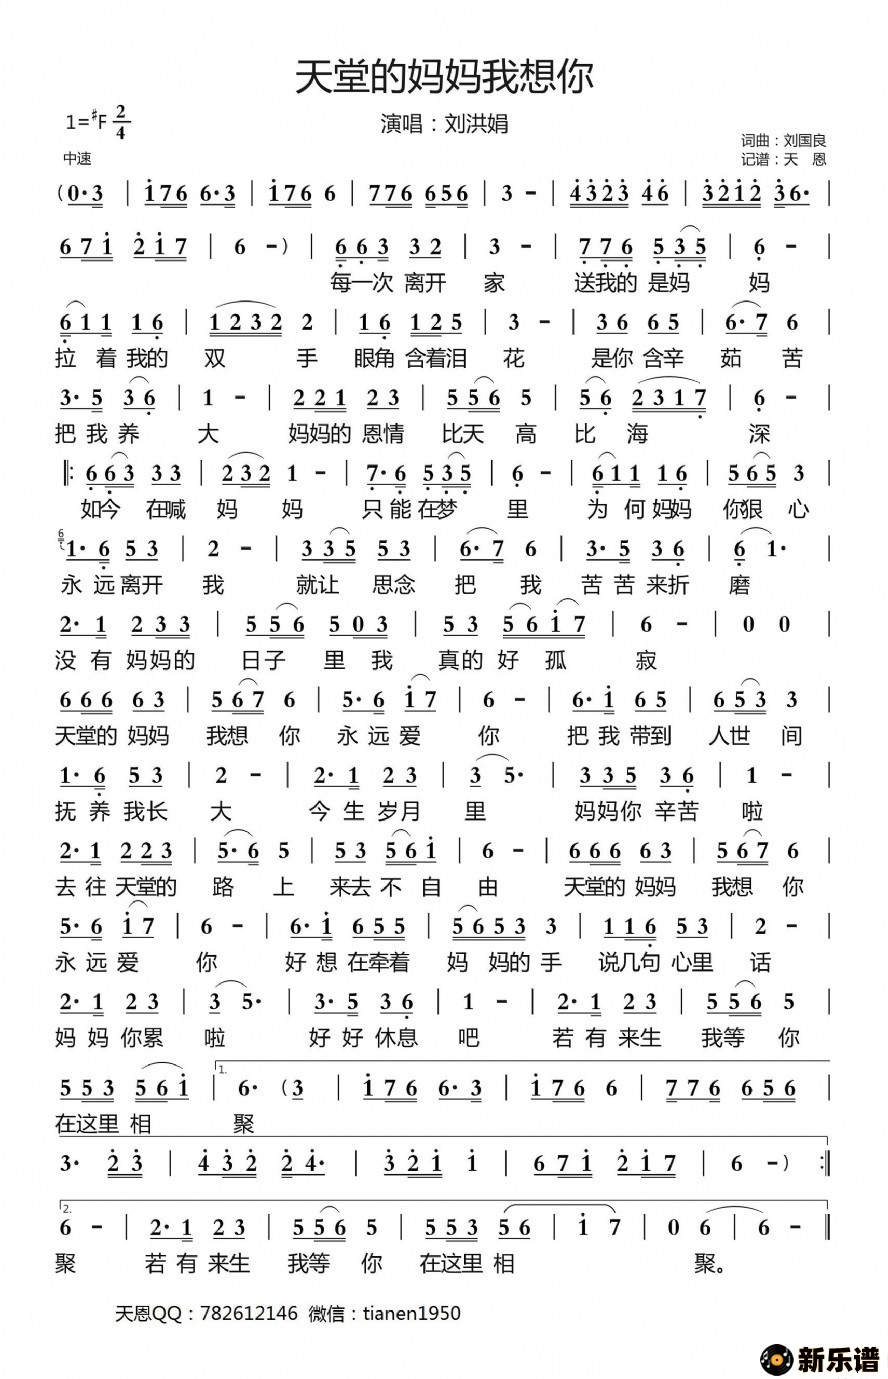 天堂的妈妈我想你
1=♯F 2/4
演唱：刘洪娟
中速
词曲：刘国良
记谱：天 恩
(0·3 | i76 6·3 | i76 6 | 776 656 | 3 - | 4323 46 | 3212 36· |
67i 2i7 | 6 -) | 663 32 | 3 - | 776 535 | 6 - |
每一次 离开 家 送我的 是妈 妈
611 16 | 1232 2 | 16 125 | 3 - | 36 65 | 6·7 6 |
拉 着 我的 双 手 眼角 含着泪 花 是你 含辛 茹 苦
3·5 36 | 1 - | 221 23 | 556 5 | 56 2317 | 6 - |
把 我 养 大 妈妈的 恩情 比天 高 比 海 深
‖: 663 33 | 232 1 - | 7·6 535 | 6 - | 611 16 | 565 3 |
如今 在喊 妈 妈 只 能 在梦 里 为 何 妈妈 你狠 心
6
1·6 53 | 2 - | 335 53 | 6·7 6 | 3·5 36 | 6 1· |
永 远 离开 我 就让 思念 把 我 苦 苦 来折 磨
2·1 233 | 556 503 | 53 56i7 | 6 - | 0 0 |
没 有 妈妈的 日子 里 我 真的 好 孤 寂
666 63 | 567 6 | 5·6 i7 | 6 - | 6·i 65 | 653 3 |
天堂的 妈妈 我想 你 永 远 爱 你 把 我 带到 人世 间
1·6 53 | 2 - | 2·1 23 | 3 5· | 335 36 | 1 - |
抚 养 我长 大 今 生 岁月 里 妈妈你 辛苦 啦
2·1 223 | 5·6 5 | 53 56i | 6 - | 666 63 | 567 6 |
去 往 天堂的 路 上 来去 不 自 由 天堂的 妈妈 我想 你
5·6 i7 | 6 - | 6·i 655 | 5653 3 | 116 53 | 2 - |
永 远 爱 你 好 想 在牵着 妈 妈的 手 说几句 心里 话
2·1 23 | 3 5· | 3·5 36 | 1 - | 2·1 23 | 556 5 |
妈 妈 你累 啦 好 好 休息 吧 若 有 来生 我等 你
553 56i | 1. 6· (3 | i76 6·3 | i76 6 | 776 656 |
在这里 相 聚
3· 23 | 432 24· | 32i i | 67i 2i7 | 6 -) :‖
2. 6 - | 2·1 23 | 556 5 | 553 56 | i 7 | 0 6 | 6 - ‖
聚 若 有 来生 我等 你 在这里 相 聚。
天恩QQ：782612146 微信：tianen1950
新乐谱